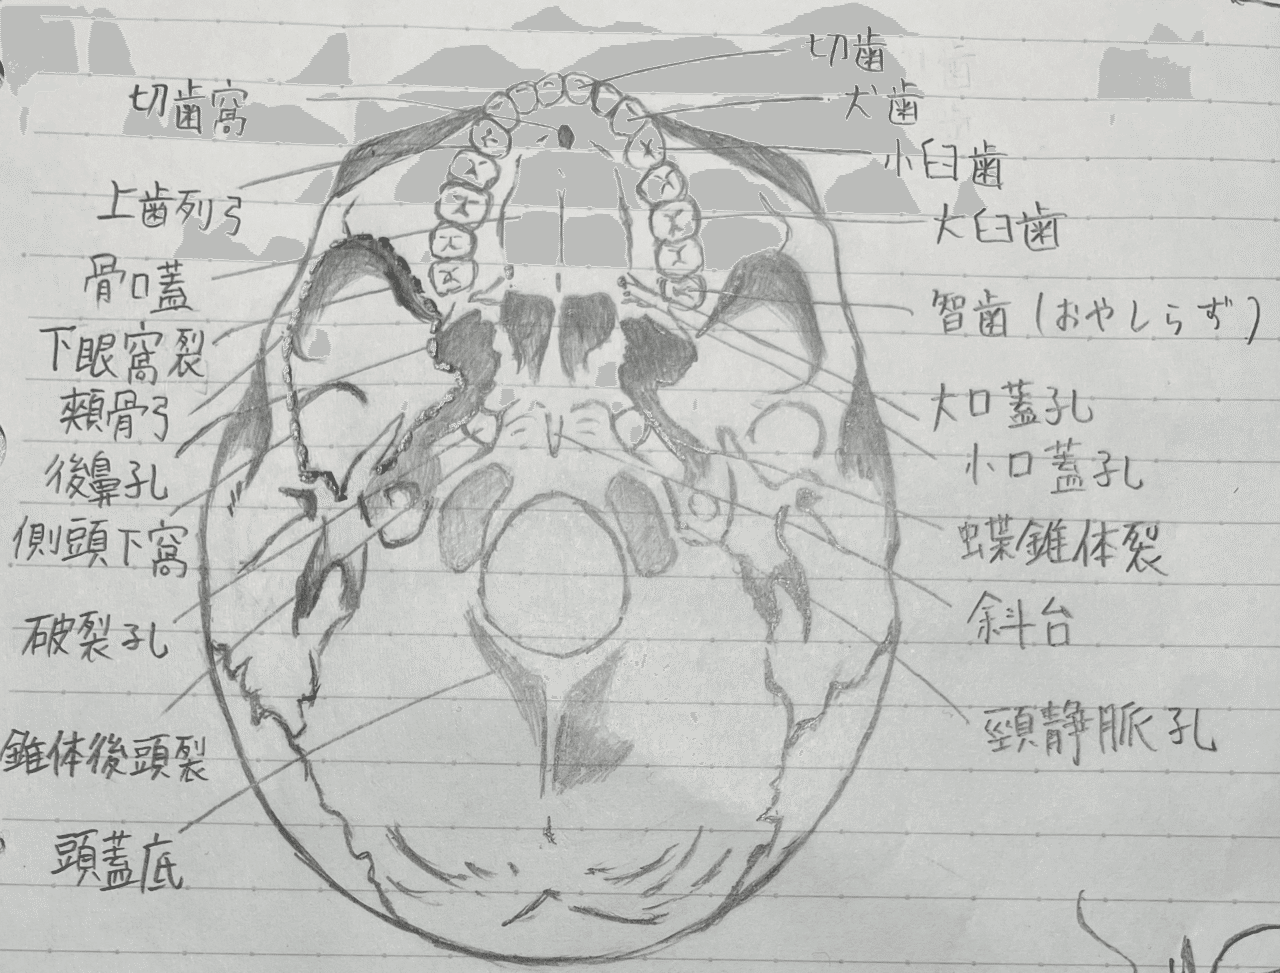 切歯窩
上歯列弓
骨口蓋
下眼窩裂
頬骨弓
後鼻孔
側頭下窩
破裂孔
錐体後頭裂
頭蓋底
切歯
犬歯
小臼歯
大臼歯
智歯（おやしらず）
大口蓋孔
小口蓋孔
蝶錐体裂
斜台
頸静脈孔